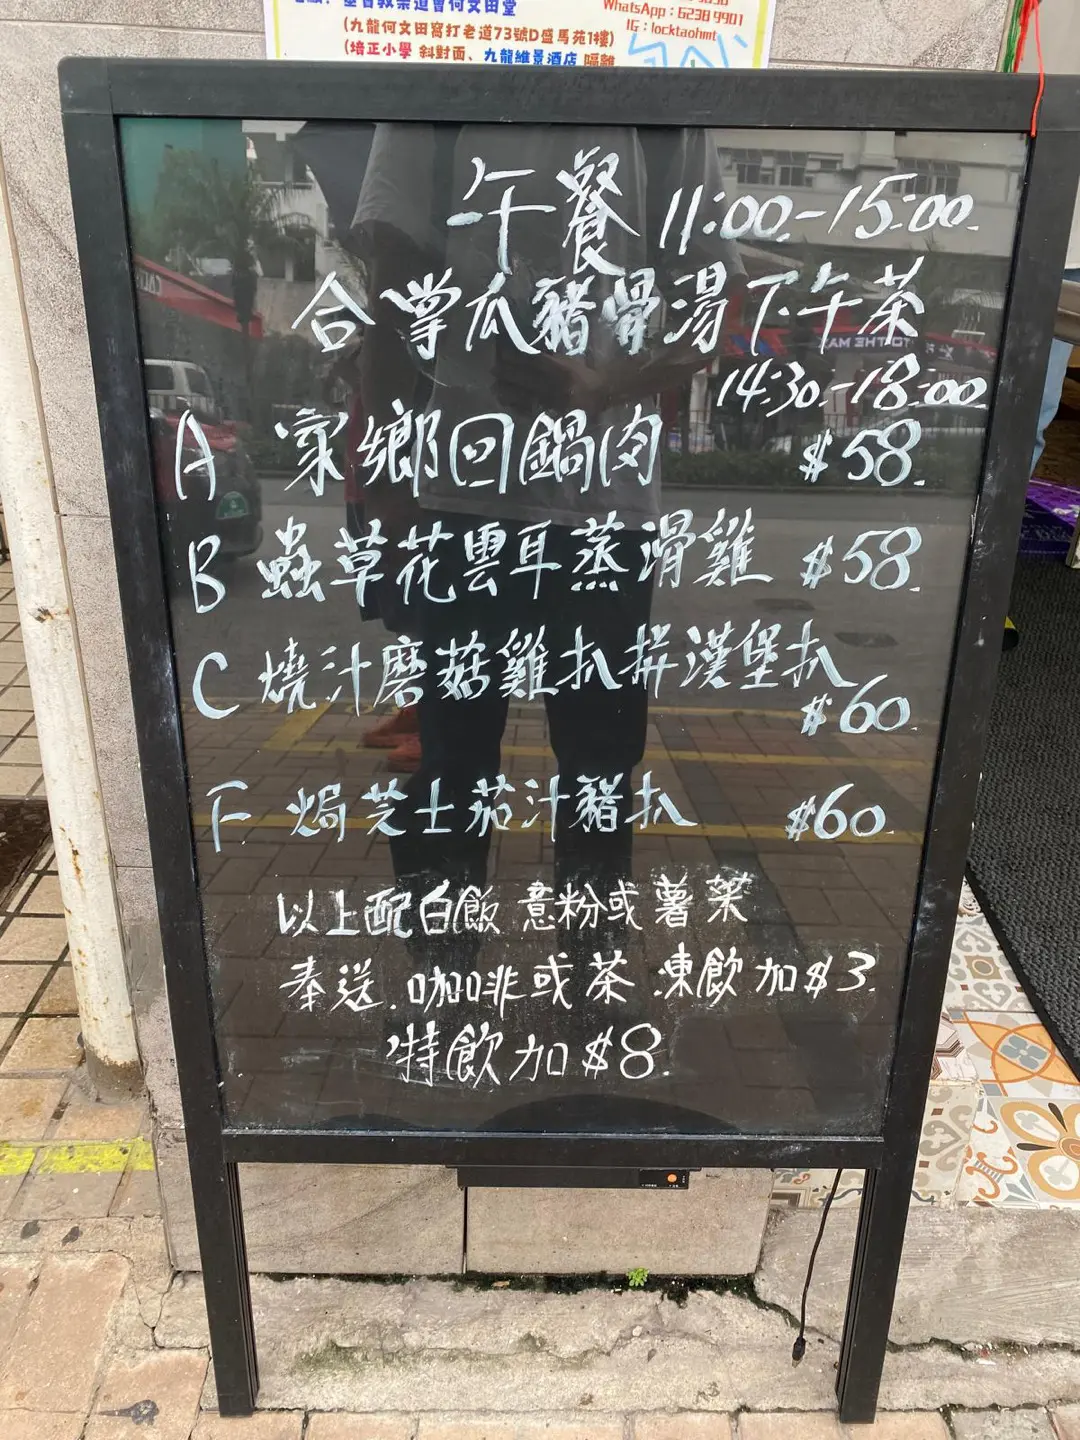 基督教樂道會何文田堂
WhatsApp : 6238 9901
(九龍何文田窩打老道73號D盛馬苑1樓)
IG : locktaohmt
(培正小學 斜對面、九龍維景酒店 隔離
午餐 11:00-15:00
合掌瓜豬骨湯下午茶
14:30-18:00
A 家鄉回鍋肉 $58.
B 蟲草花雲耳蒸滑雞 $58
C 燒汁磨菇雞扒拼漢堡扒
$60.
F 焗芝士茄汁豬扒 $60.
以上配白飯 意粉或薯菜
奉送.咖啡或茶.凍飲加$3.
特飲加$8.